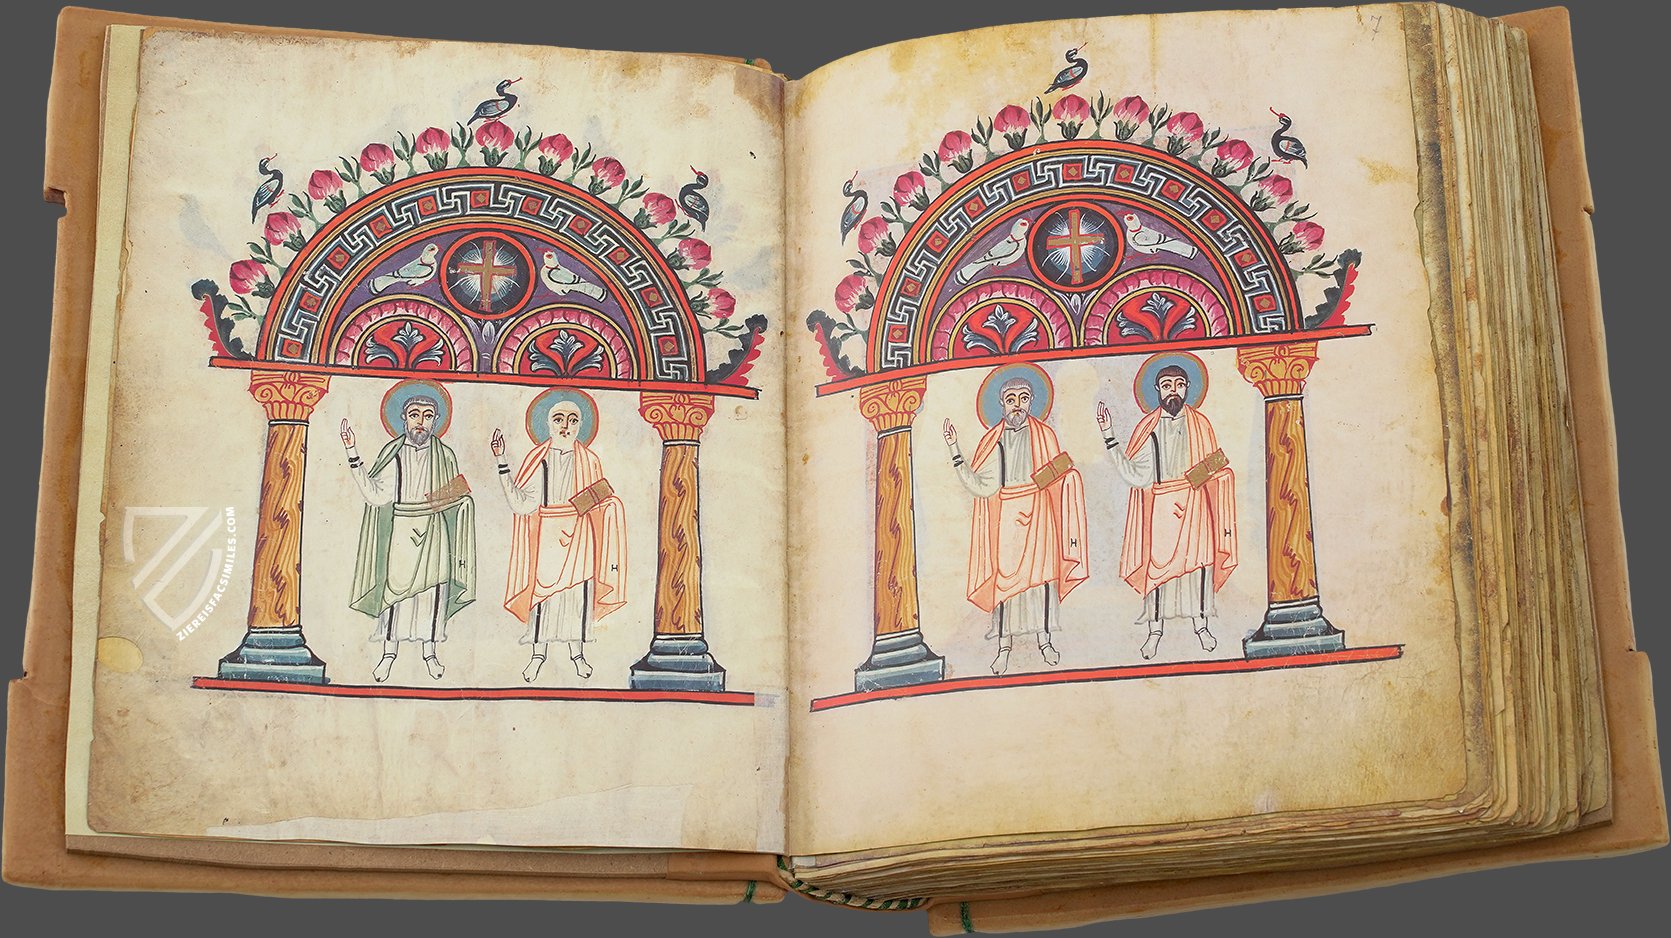 7
H
H
H
H
ZIEREISFACSIMILES.COM